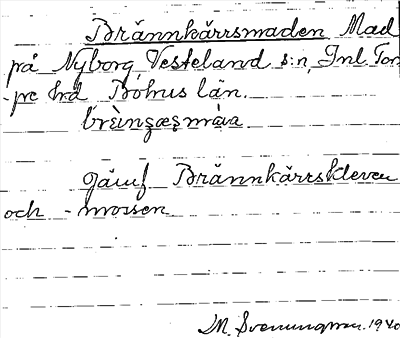 Brännkärrsmaden Mad
på Nyborg, Vesteland s:n, Inl. Tor-
-pe hrd Bohus län.
Jämf Brännkärrskleven
och - mossen
M. Svenungsson. 1940